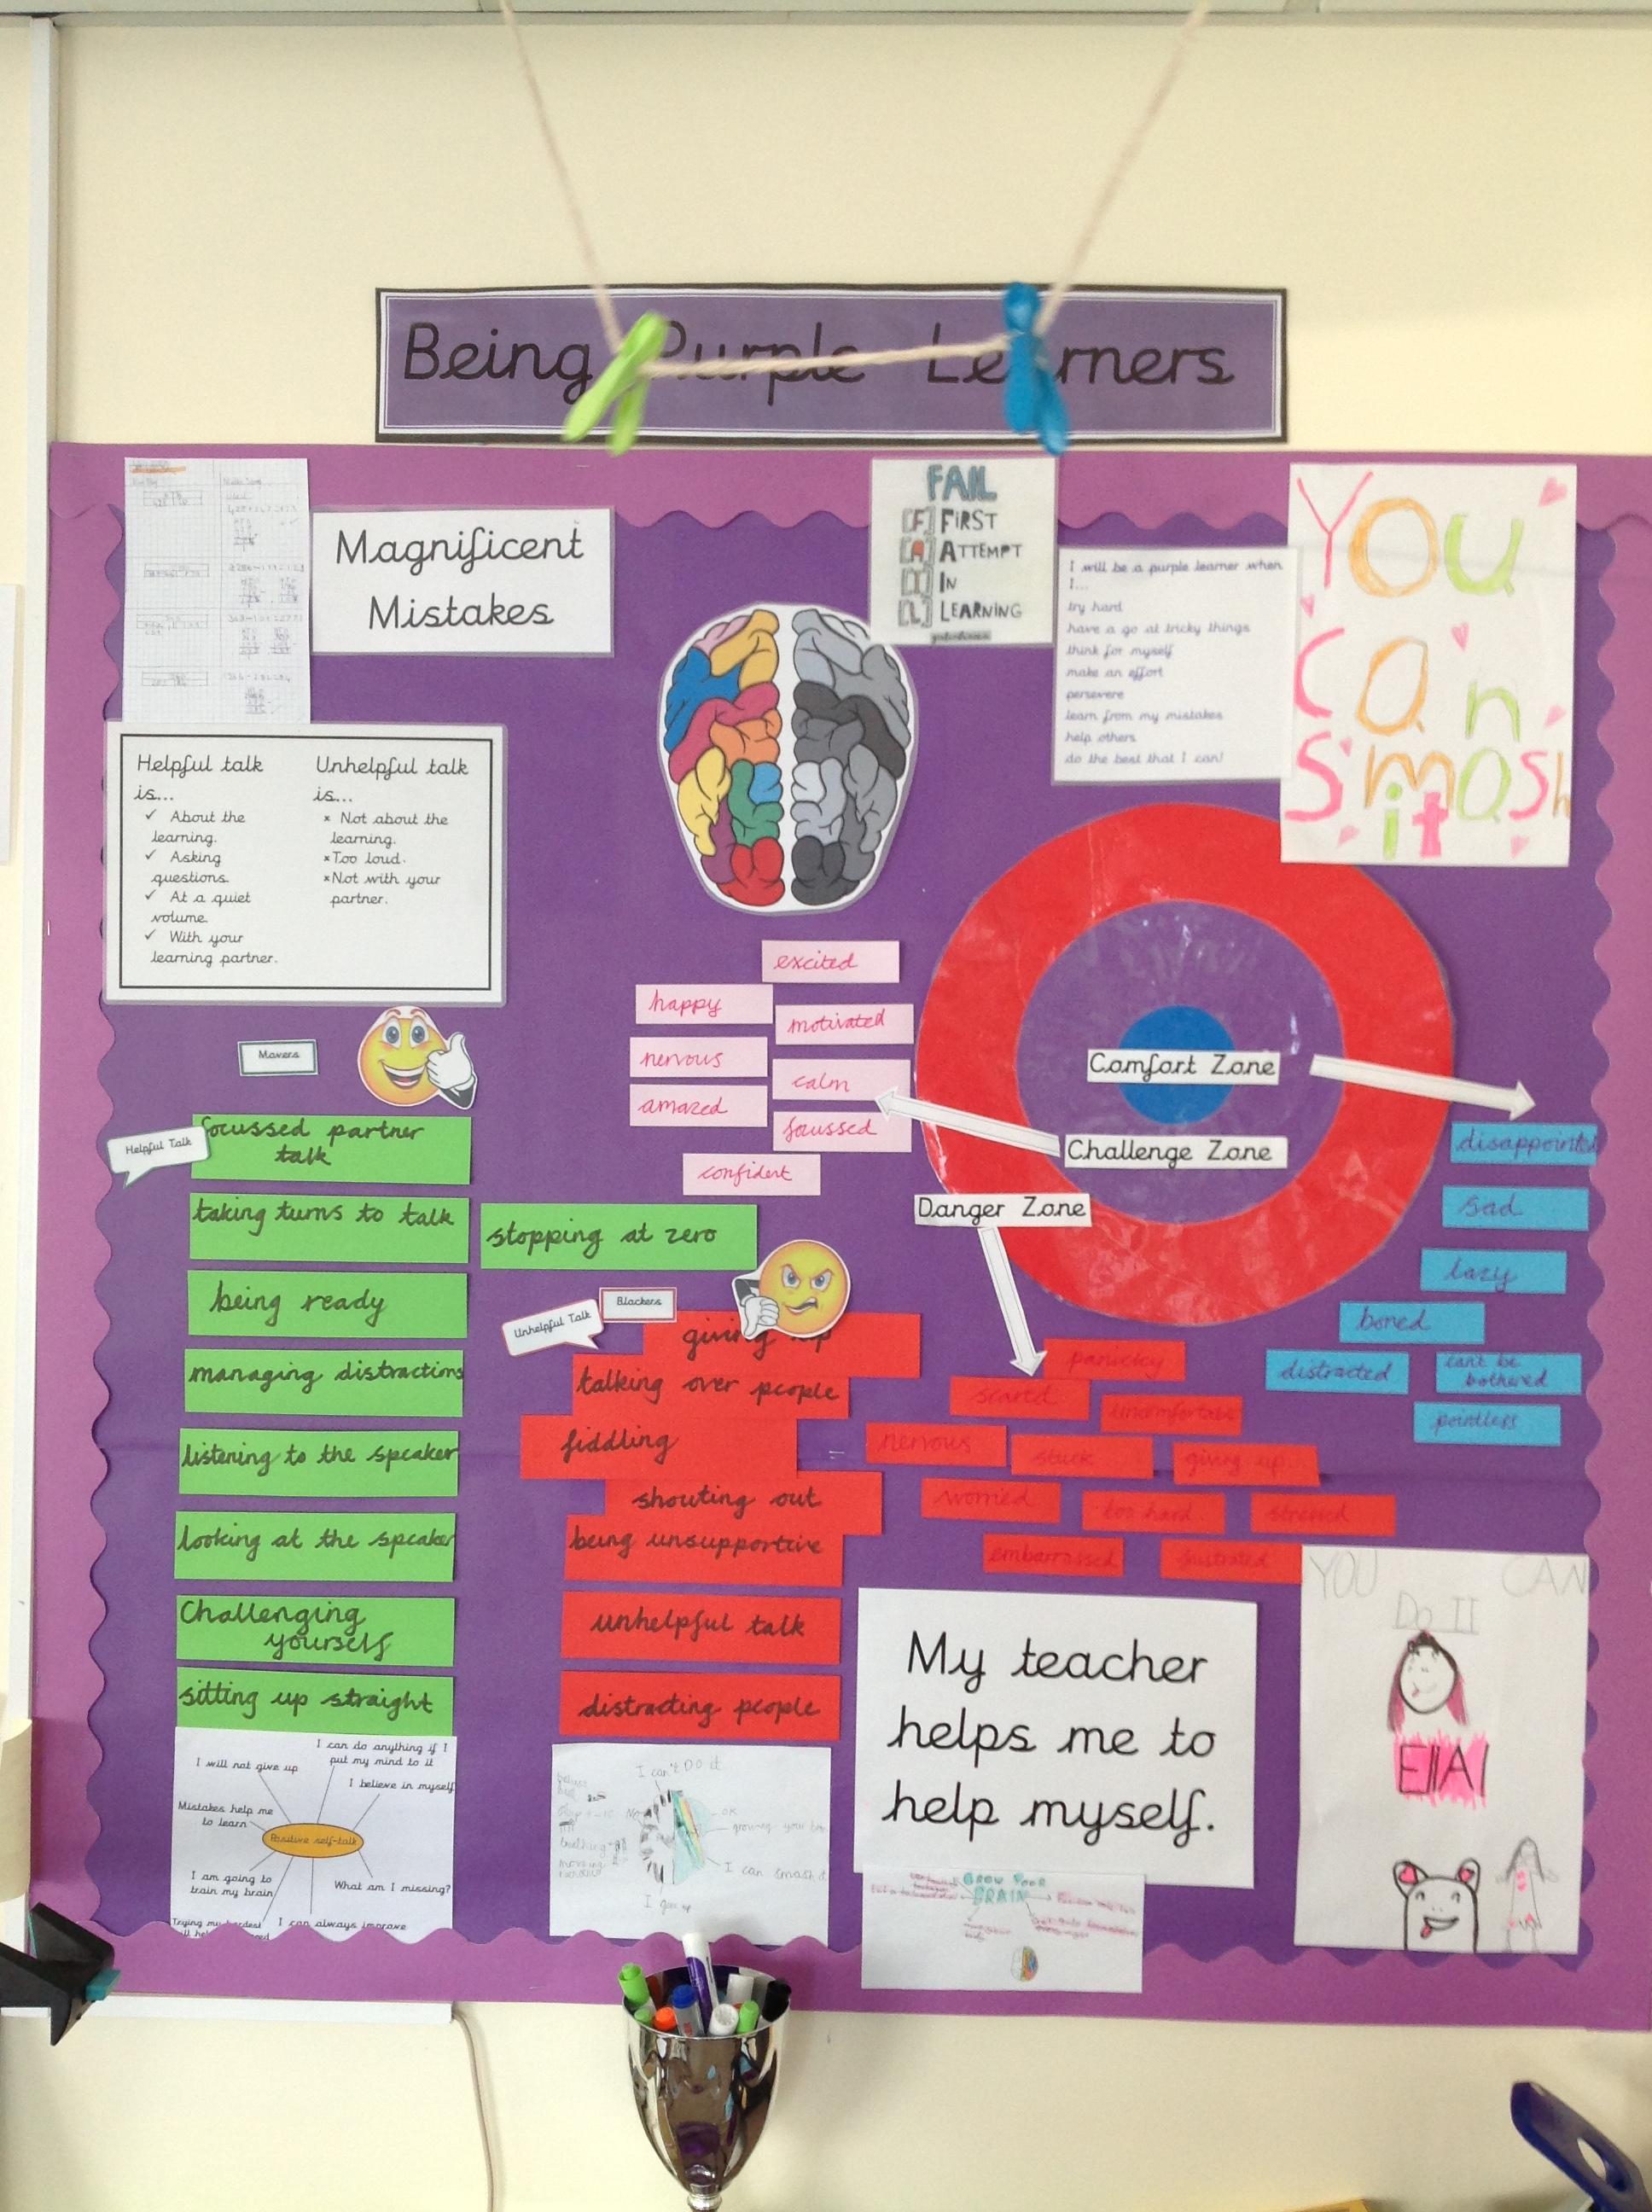 Being Purple Learners
Magnificent
Mistakes
FAIL
[F] FIRST
[A] ATTEMPT
[I] IN
[L] LEARNING
I will be a purple learner when
I...
try hard
have a go at tricky things
think for myself
make an effort
persevere
learn from my mistakes
help others
do the best that I can!
You
Can
Smash
it
Helpful talk
is...
✓ About the
learning.
✓ Asking
questions.
✓ At a quiet
volume.
✓ With your
learning partner.
Unhelpful talk
is...
× Not about the
learning.
×Too loud.
×Not with your
partner.
Movers
Helpful Talk
focussed partner
talk
taking turns to talk
being ready
managing distractions
listening to the speaker
looking at the speaker
Challenging
yourself
sitting up straight
stopping at zero
Blockers
Unhelpful Talk
giving up
talking over people
fiddling
shouting out
being unsupportive
unhelpful talk
distracting people
excited
happy
motivated
nervous
calm
amazed
foussed
confident
Comfort Zone
Challenge Zone
Danger Zone
disappointed
sad
lazy
bored
distracted
can't be
bothered
pointless
panicky
scared
uncomfortable
nervous
stuck
giving up
worried
too hard
stressed
embarrassed
frustrated
My teacher
helps me to
help myself.
YOU CAN
Do IT
EllA!
I can do anything if I
put my mind to it
I will not give up
I believe in myself
Mistakes help me
to learn
Positive self-talk
I am going to
train my brain
What am I missing?
Trying my hardest
I can always improve
I can't DO it
No
OK
growing your
I can smash it
I give up
GROW YOUR
BRAIN